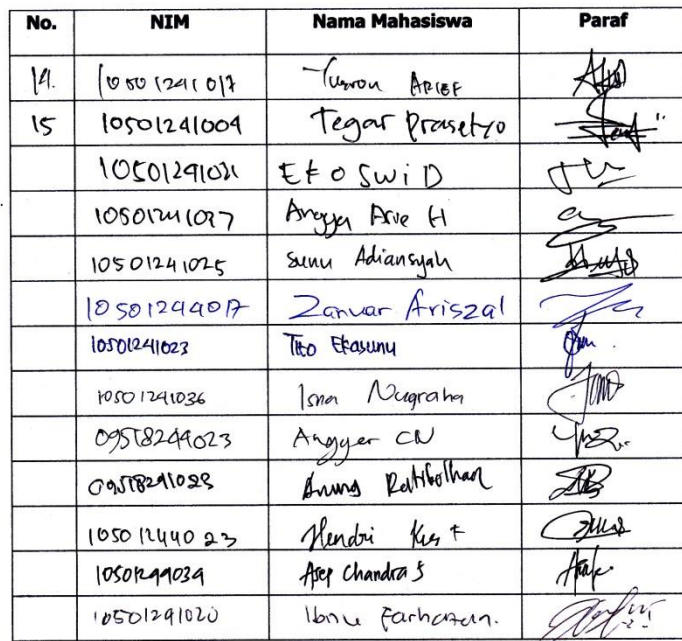 No. NIM Nama Mahasiswa Paraf
14. 10501241017 Yusron ARIEF
15 10501241004 Tegar Prasetyo
10501241021 EKO SWi D
10501241027 Angga Arie H
10501241025 Sunu Adiansyah
10501244017 Zanuar Ariszal
10501241023 Tito Ekasunu
10501241036 Isna Nugraha
09518244023 Angger CN
09518241023 Anung
10501244023 Hendri Kus F
10501244034 Asep Chandra S
10501241020 Ibnu Farhazun.